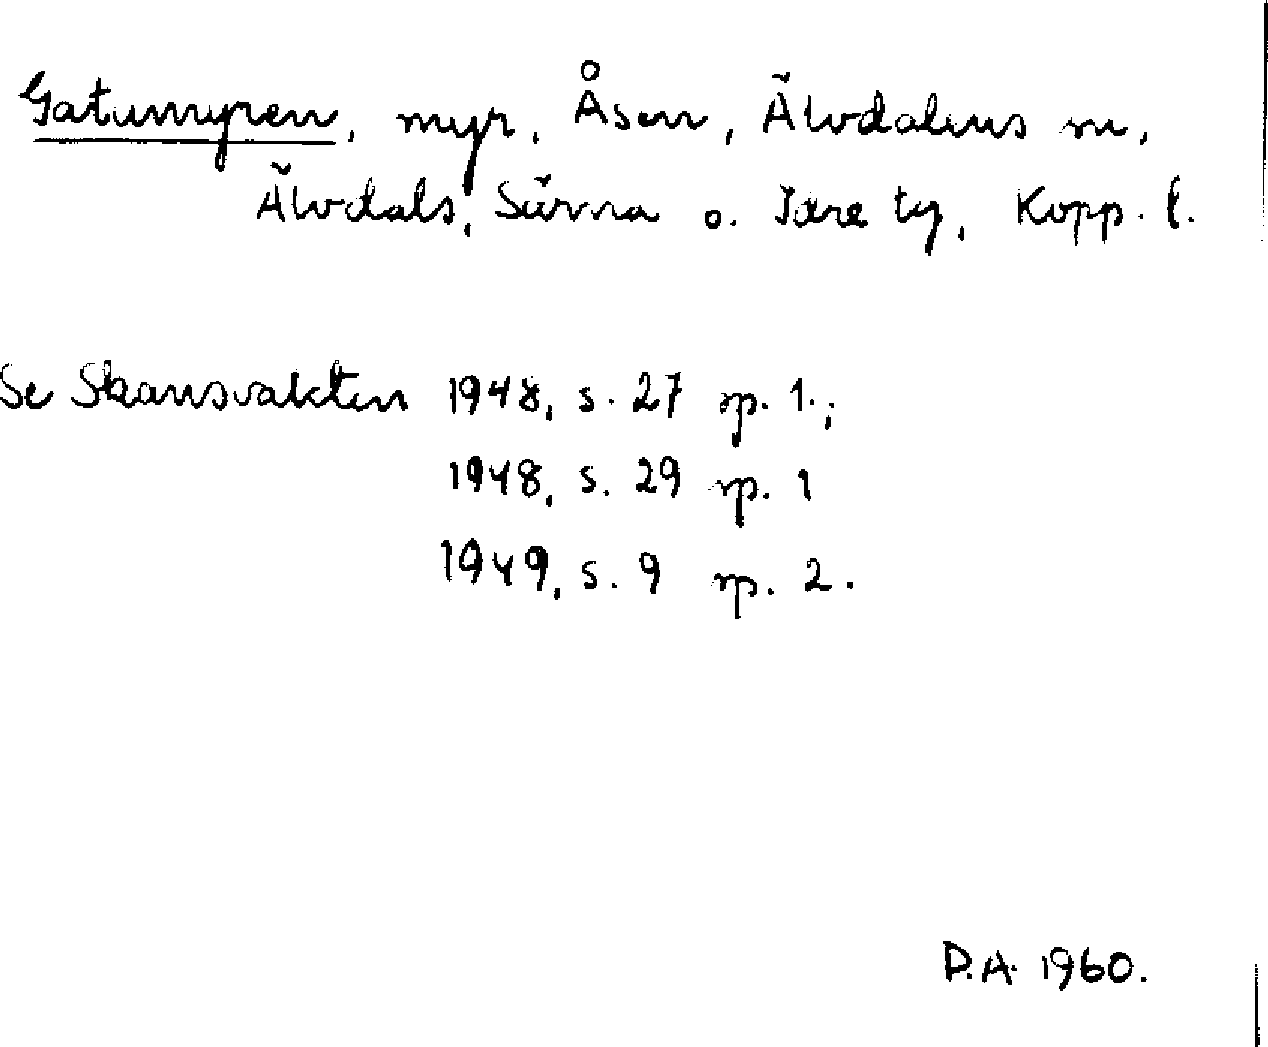 Gatumyren, myr, Åsen, Älvdalens sn,
Älvdals, Särna o. Idre tg, Kopp. l.
Se Skansvakten 1948, s. 27 sp. 1.;
1948, s. 29 sp. 1
1949, s. 9 sp. 2.
D.A. 1960.